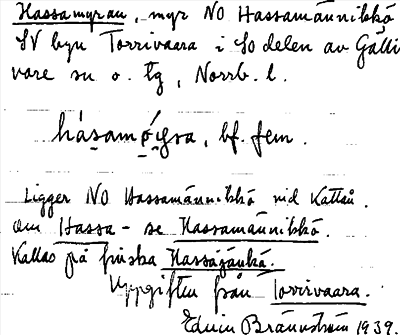 Hassamyran, myr NO Hassamännikkö
SV byn Torrivaara i SO delen av Gälli
vare sn o. tg, Norrb. l.
hásamǿ̨yra, bf. fem.
Ligger NO Hassamännikkö vid Kattån.
Om Hassa- se Hassamännikkö.
Kallas på finska Hassajänkä.
Uppgiften från Torrivaara.
Edvin Brännström 1939.